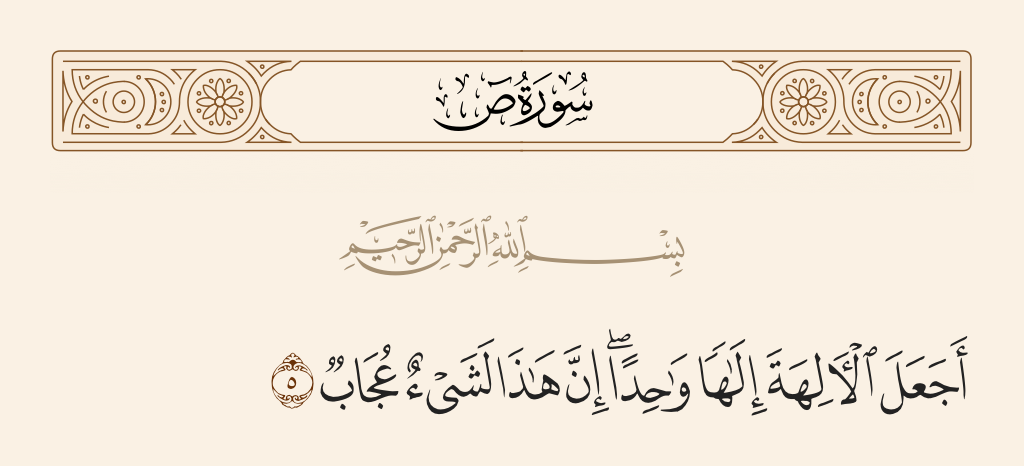 سُورَةُ صٓ
بِسْمِ ٱللَّهِ ٱلرَّحْمَٰنِ ٱلرَّحِيمِ
أَجَعَلَ ٱلْأَلِهَةَ إِلَٰهًا وَٰحِدًا ۖ إِنَّ هَٰذَا لَشَىْءٌ عُجَابٌ ٥